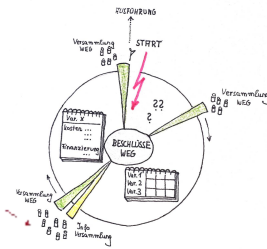 AUSFÜHRUNG
Versammlung
WEG
START
??
?
Versammlung
WEG
Var. X
Kosten ...
...
Finanzierung...
...
BESCHLÜSSE
WEG
Var. 1
Var. 2
Var. 3
Versammlung
WEG
Info
Versammlung